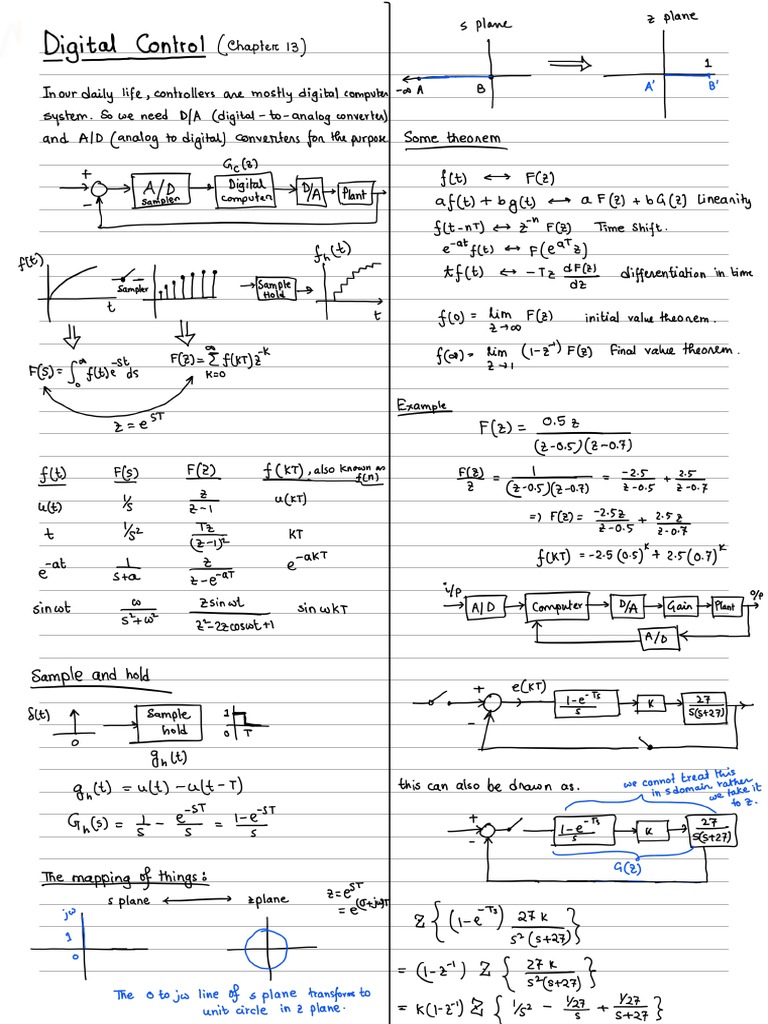 Digital Control (Chapter 13)
In our daily life, controllers are mostly digital computer
system. So we need D/A (digital-to-analog converter)
and A/D (analog to digital) converters for the purpose
Gc(z)
+
A/D
sampler
Digital
computer
D/A
Plant
-
f(t)
t
Sampler
Sample
Hold
fh(t)
t
F(s) = ∫₀^∞ f(t)e^-st ds
F(z) = ∞Σk=0 f(KT)z^-k
z = e^ST
f(t) F(s) F(z) f(KT), also known as f(n)
u(t) 1/s z/(z-1) u(KT)
t 1/s² Tz/(z-1)² KT
e^-at 1/(s+a) z/(z-e^-aT) e^-aKT
sin ωt ω/(s²+ω²) z sin ωt/(z²-2z cos ωt+1) sin ωKT
Sample and hold
δ(t)
0
Sample
hold
1
0 T
gh(t)
gh(t) = u(t) - u(t-T)
Gh(s) = 1/s - e^-ST/s = (1-e^-ST)/s
The mapping of things:
s plane ⟷ z plane
z = e^ST
= e^(σ+jω)T
jω
1
0
The 0 to jω line of s plane transforms to
unit circle in z plane.
s plane
-∞ A B
⇒
z plane
1
A' B'
Some theorem
f(t) ↔ F(z)
af(t) + bg(t) ↔ a F(z) + b G(z) Linearity
f(t-nT) ↔ z^-n F(z) Time shift.
e^-at f(t) ↔ F(e^aT z)
tf(t) ↔ -Tz dF(z)/dz differentiation in time
f(0) = lim z→∞ F(z) initial value theorem.
f(∞) = lim z→1 (1-z^-1) F(z) Final value theorem.
Example
F(z) = 0.5 z/((z-0.5)(z-0.7))
F(z)/z = 1/((z-0.5)(z-0.7)) = -2.5/(z-0.5) + 2.5/(z-0.7)
⇒ F(z) = -2.5z/(z-0.5) + 2.5z/(z-0.7)
f(KT) = -2.5(0.5)^K + 2.5(0.7)^K
i/p
A/D
Computer
D/A
Gain
Plant
o/p
A/D
+
-
e(KT)
(1-e^-Ts)/s
K
27/(s(s+27))
this can also be drawn as.
we cannot treat this
in s domain rather
we take it
to z.
+
-
(1-e^-Ts)/s
K
27/(s(s+27))
G(z)
Z{(1-e^-Ts) 27K/(s²(s+27))}
= (1-z^-1) Z{27K/(s²(s+27))}
= K(1-z^-1) Z{1/s² - (1/27)/s + (1/27)/(s+27)}